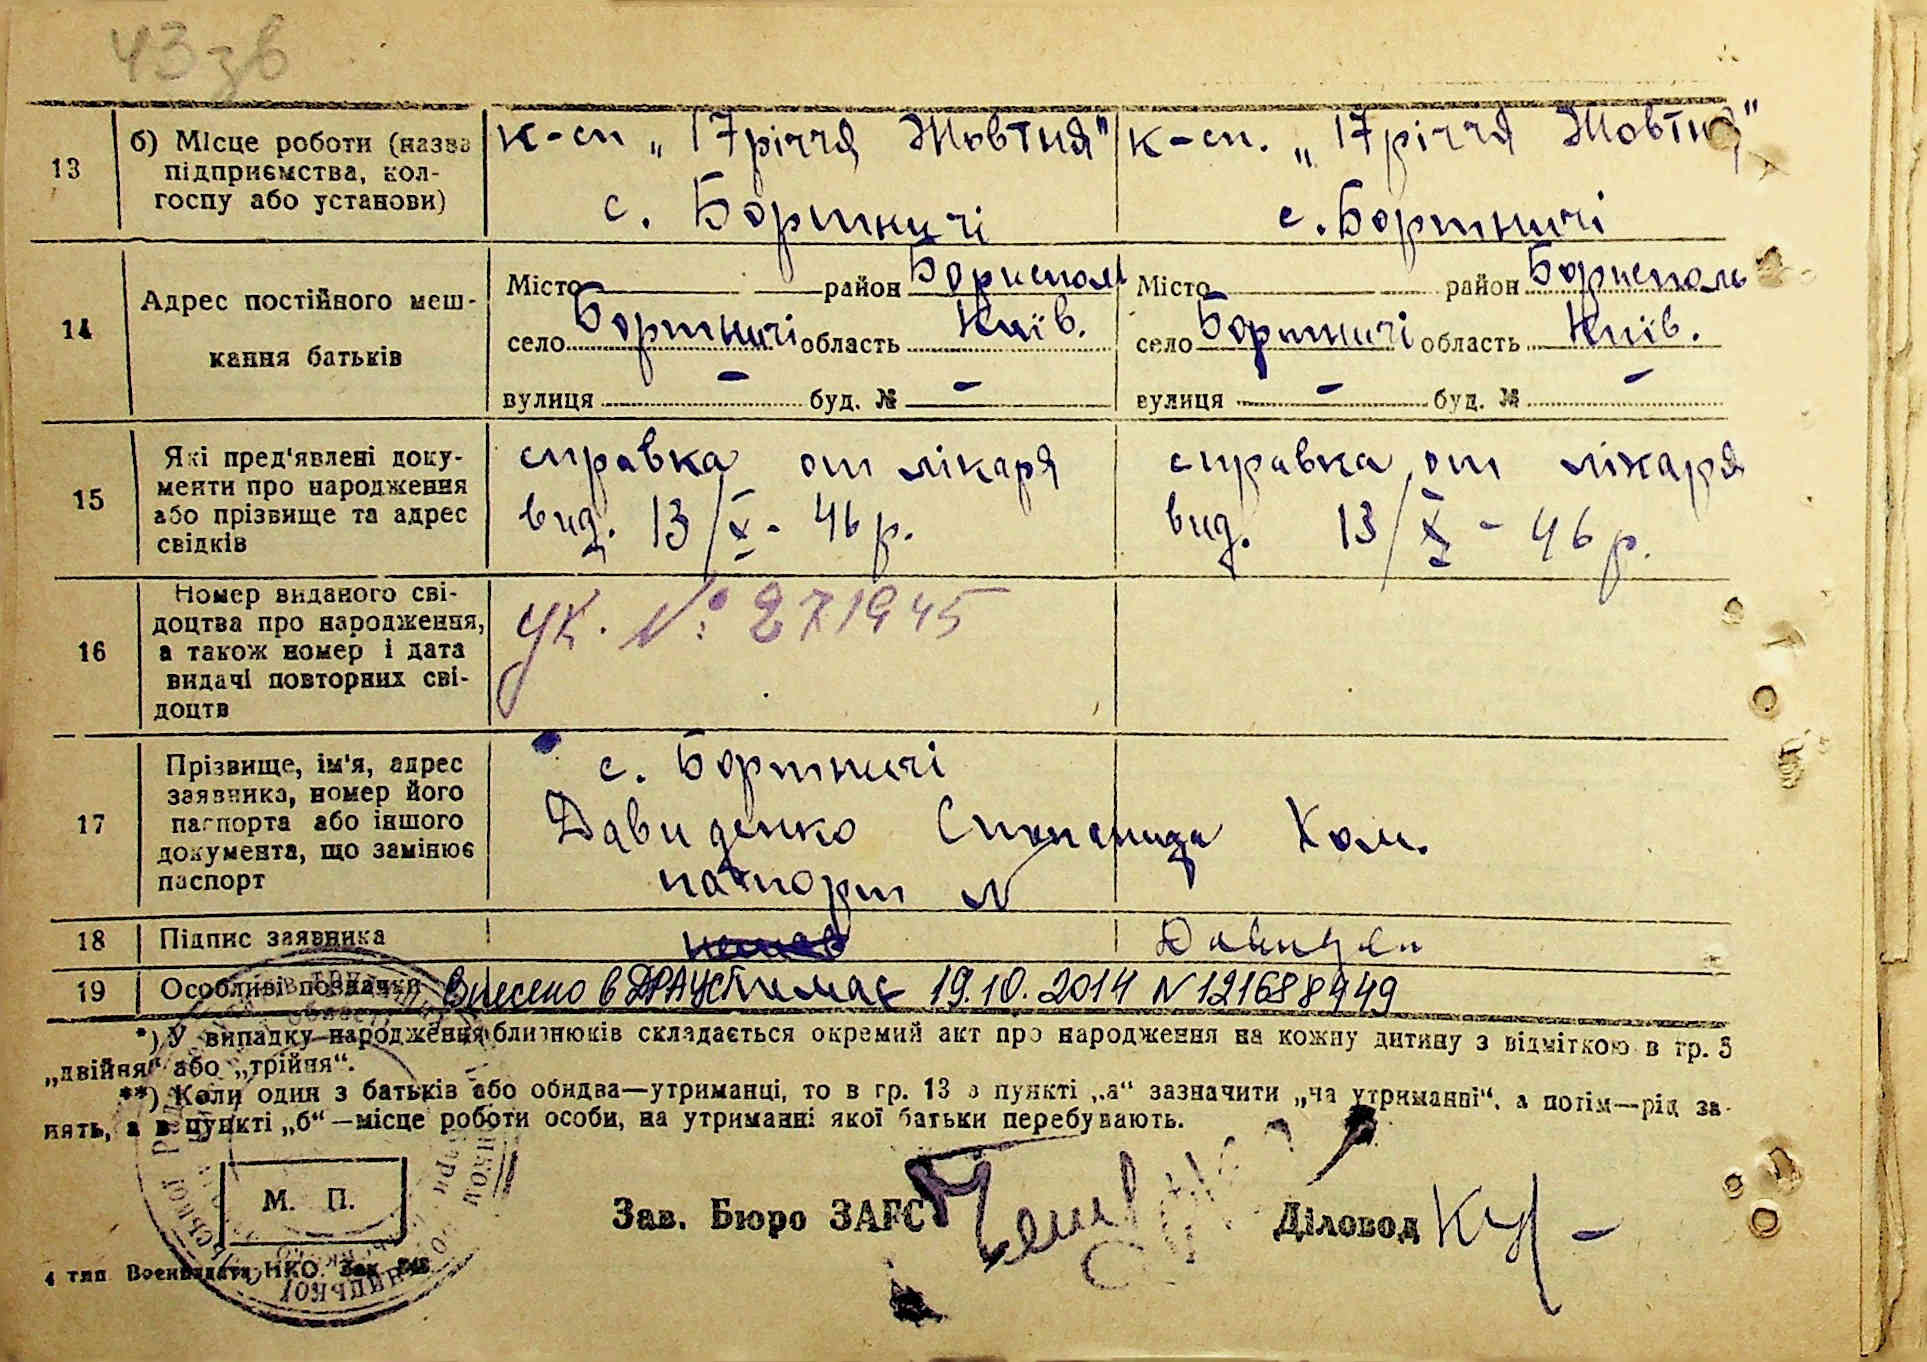 43зв
13 б) Місце роботи (назва підприємства, колгоспу або установи)
к-сп „17річчя Жовтня"
с. Бортничі
к-сп. „17річчя Жовтня"
с. Бортничі
14 Адрес постійного мешкання батьків
Місто район Борисполь
село Бортничі область Київ.
вулиця - буд. № -
Місто район Борисполь
село Бортничі область Київ.
вулиця - буд. № -
15 Які пред'явлені документи про народження або прізвище та адрес свідків
справка от лікаря
вид. 13/X - 46 р.
справка от лікаря
вид. 13/X - 46 р.
16 Номер виданого свідоцтва про народження, а також номер і дата видачі повторних свідоцтв
УК. №: 271945
17 Прізвище, ім'я, адрес заявника, номер його паспорта або іншого документа, що замінює паспорт
с. Бортничі
Давиденко Степанида Хом.
паспорт N
18 Підпис заявника
19 Особливі позначки Внесено в ДРАЦСГ 19.10.2014 N 121688949
*) У випадку народження близнюків складається окремий акт про народження на кожну дитину з відміткою в гр. 5
„двійня" або „трійня".
**) Коли один з батьків або обидва—утриманці, то в гр. 13 в пункті „а" зазначити „на утриманні", а потім—рід за-
нять, а в пункті „б"—місце роботи особи, на утриманні якої батьки перебувають.
М. П.
Зав. Бюро ЗАГС
Діловод
4 тип. Воениздата НКО. Зак.